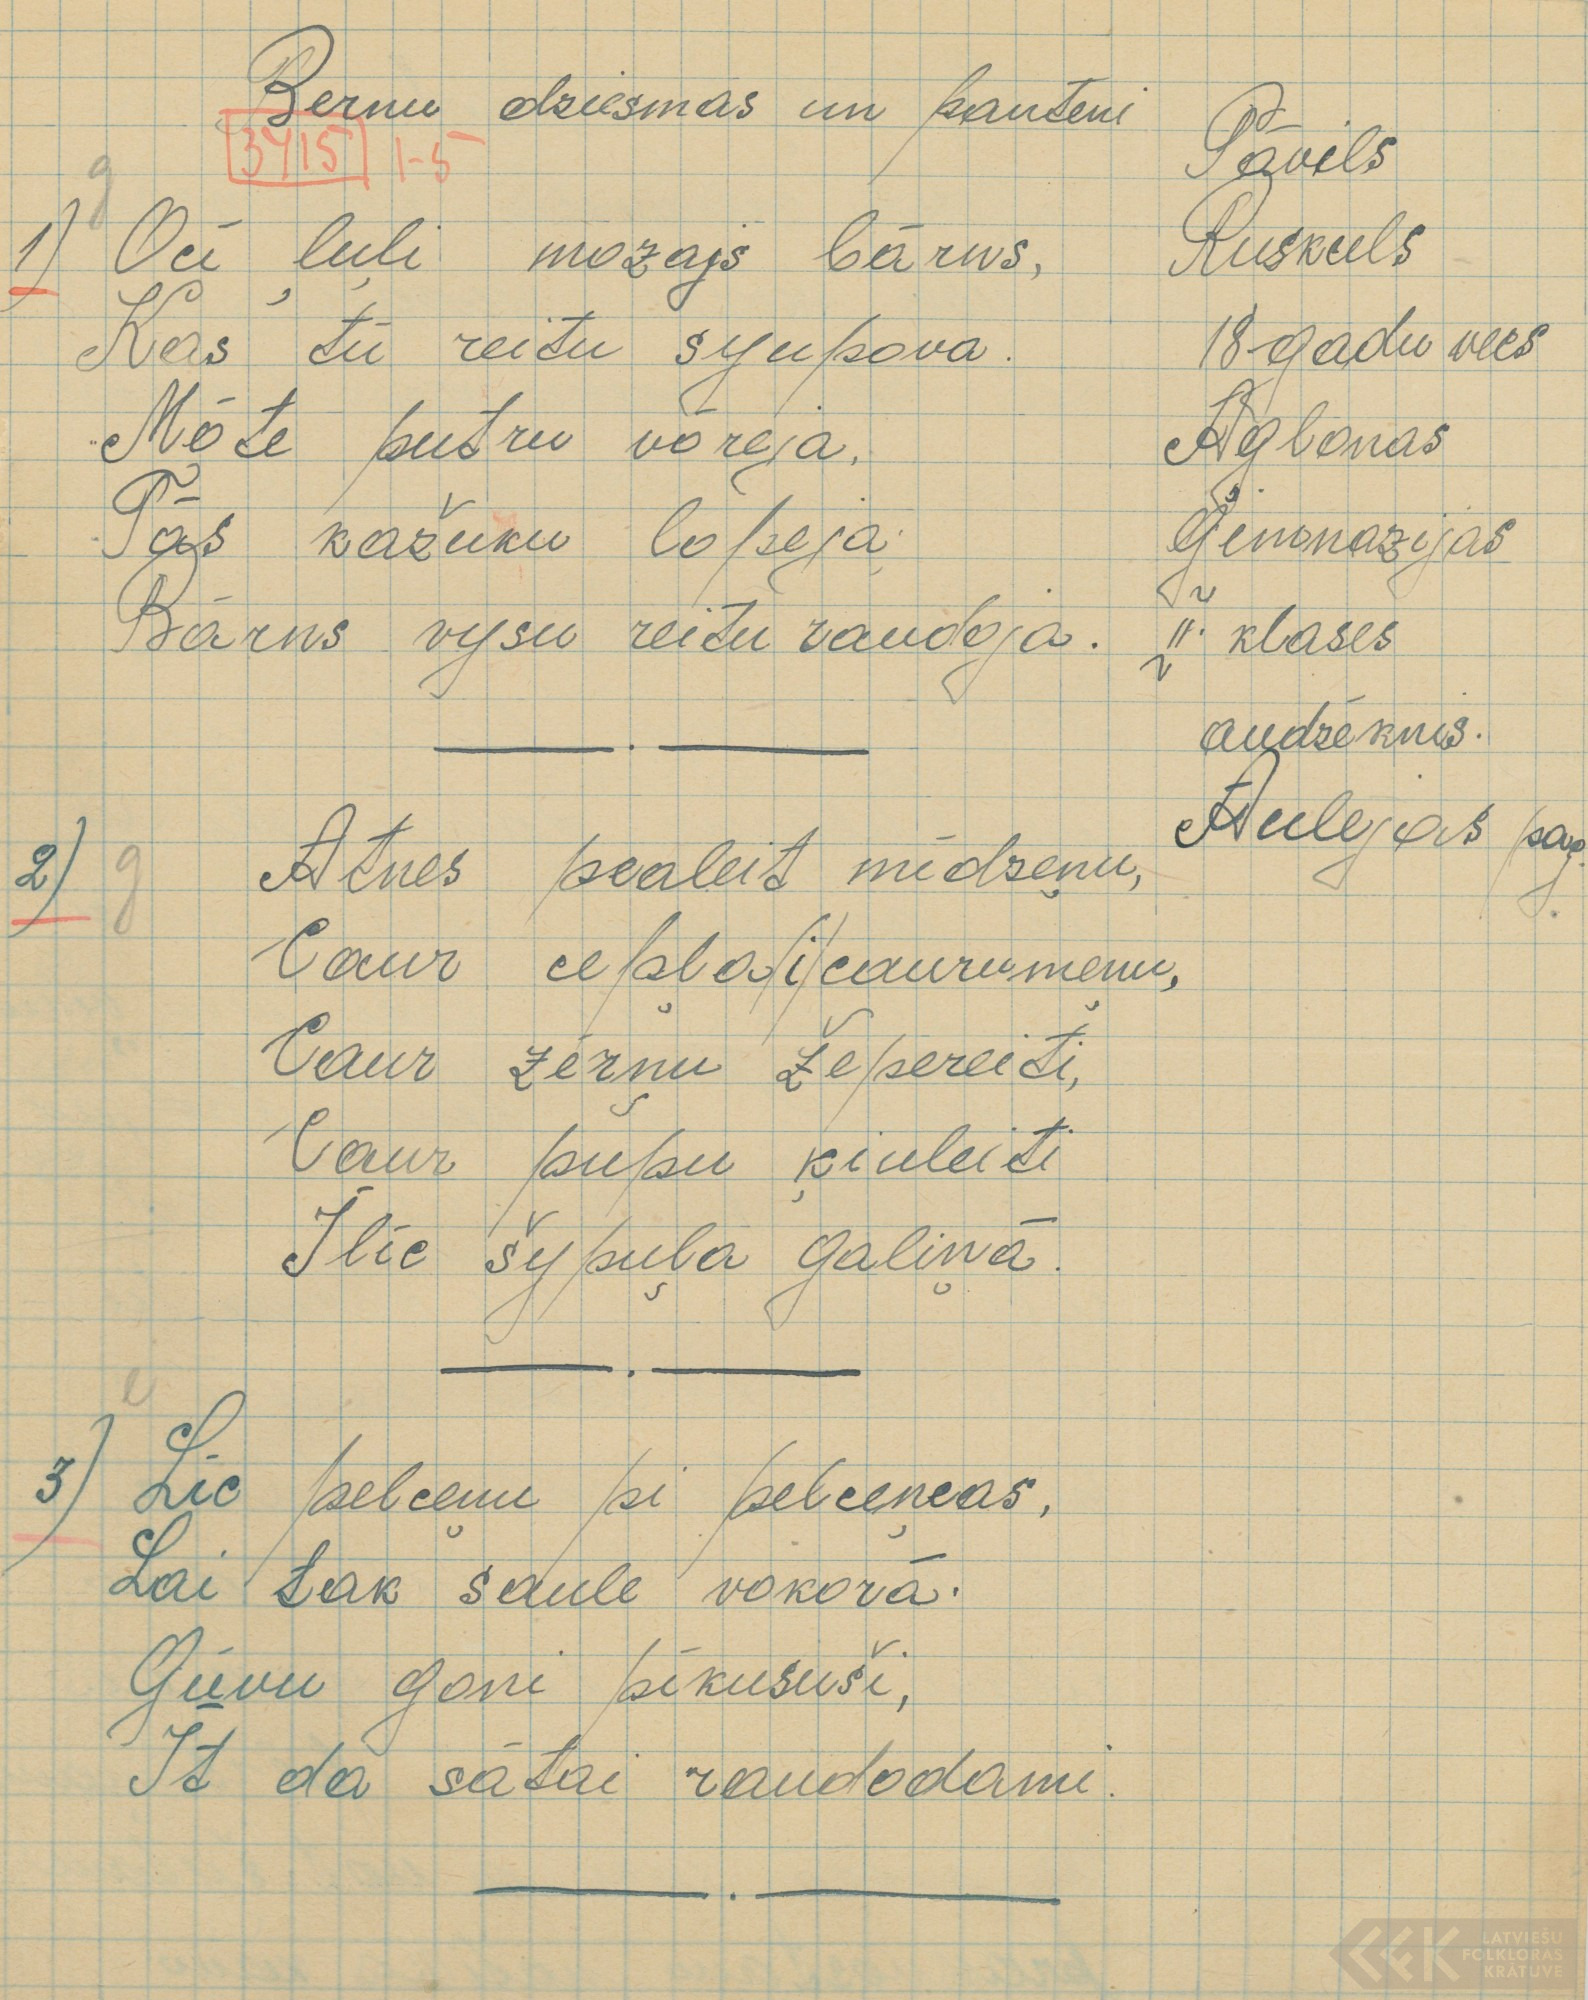 Bernu dziesmas un panteni
3415 1-5
Pāvils
Ruskuls
18 gadu vecs
Aglonas
Ģimnazijas
II. klases
audzēknis.
Aulejas pag.
g
1) Oci ļuļi mozajs bārns,
Kas tū reitu syupova.
Mōte putru vōreja,
Tās kažuku lopeja.
Bārns vysu reitu raudoja.
2) g
Atnes pealeit mīdzeņu,
Caur cepļa/i/caurumeņu,
Caur zērņu žepereiti,
Caur pupu ķiuleiti
Īlīc šypuļa galiņā.
e
3) Līc pelceņu pi pelceņeas,
Lai tak saule vokorā.
Gūvu goni pīkususi,
It da sātai raudodami.
LATVIEŠU
FOLKLORAS
KRĀTUVE